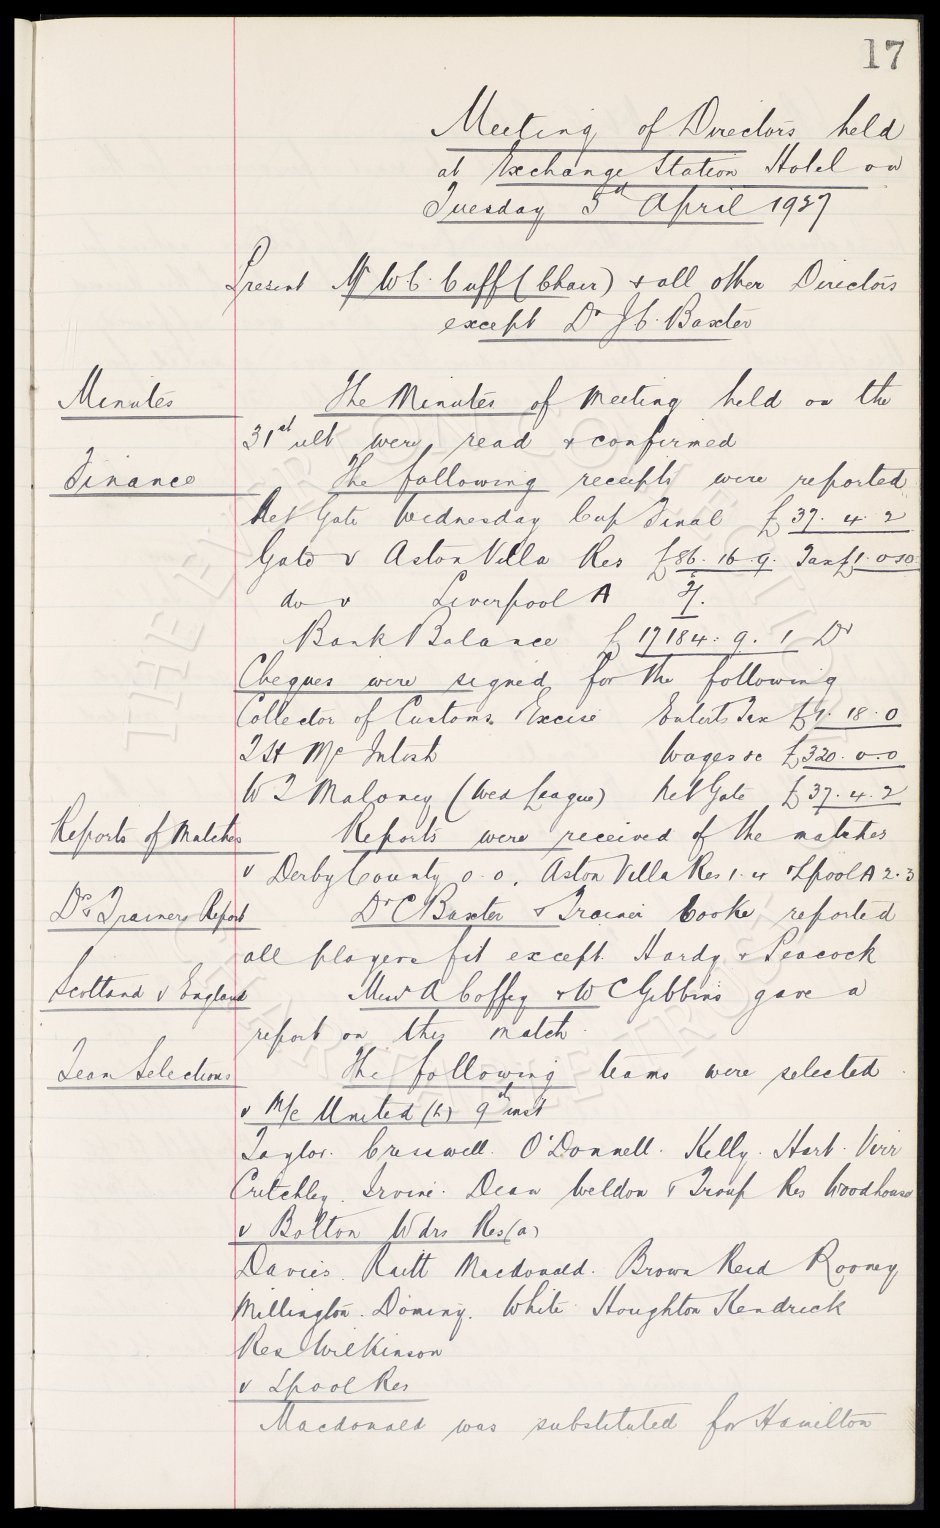 17
Meeting of Directors held
at Exchange Station Hotel on
Tuesday 5th April 1927
Present Mr W C Cuff (Chair) & all other Directors
except Dr J C. Baxter
Minutes The Minutes of Meeting held on the
31st ult were read & confirmed
Finance The following receipts were reported
Net Gate Wednesday Cup Final £37. 4. 2
Gate v Aston Villa Res £86. 16. 9. Tax £1. 0 10
do v Liverpool A 2/.
Bank Balance £17184. 9. 1 Dr
Cheques were signed for the following
Collector of Customs Excise Enterts Tax £1. 18. 0
T H McIntosh Wages &c £320. 0. 0
W T Maloney (Wed League) Net Gate £37. 4. 2
Reports of Matches Reports were received of the matches
v Derby County 0. 0. Aston Villa Res 1. 4 & Lpool A 2. 3
Drs & Trainers Report Dr C Baxter & Trainer Cooke reported
all players fit except Hardy & Peacock
Scotland v England Messrs A Coffey & W C Gibbins gave a
report on this match.
Team Selections The following teams were selected
v M/c United (h) 9th inst
Taylor. Cresswell. O'Donnell. Kelly. Hart. Virr
Critchley. Irvine. Dean Weldon & Troup Res Woodhouse
v Bolton Wdrs Res (a)
Davies. Raitt Macdonald. Brown Reid Rooney
Millington. Dominy. White Houghton Kendrick
Res Wilkinson
v Lpool Res
Macdonald was substituted for Hamilton
THE EVERTON COLLECTION
CHARITABLE TRUST